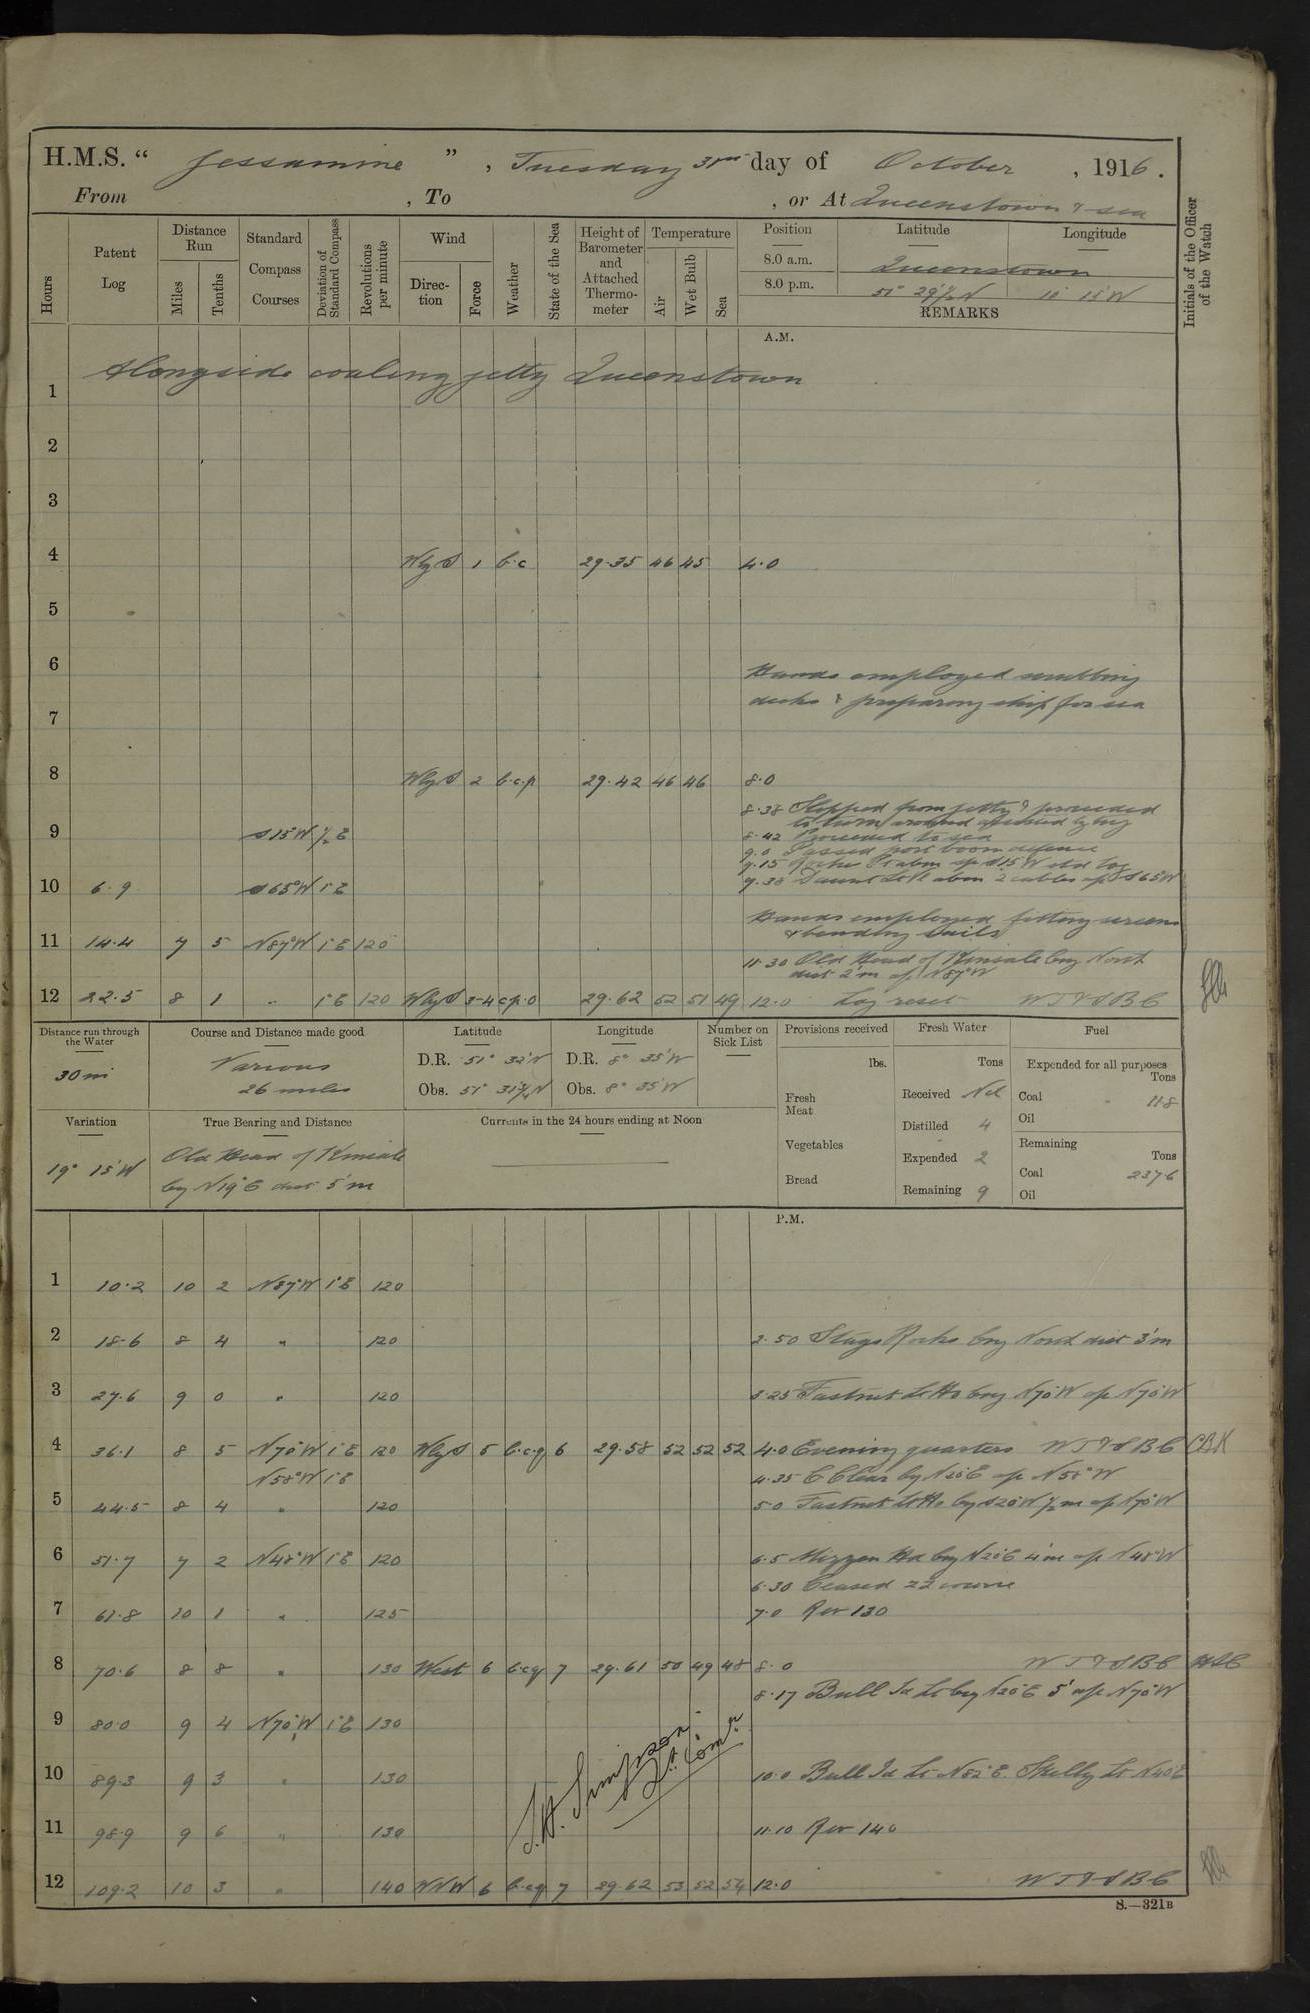 H.M.S. “ Jessamine ” , Tuesday 31st day of October , 1916.
From , To , or At Queenstown & sea
Hours
Patent Log
Distance Run
Miles
Tenths
Standard Compass Courses
Deviation of Standard Compass
Revolutions per minute
Wind
Direction
Force
Weather
State of the Sea
Height of Barometer and Attached Thermometer
Temperature
Air
Wet Bulb
Sea
Position
Latitude
Longitude
8.0 a.m. Queenstown
8.0 p.m. 51° 29½' N 10° 15' W
REMARKS
Initials of the Officer of the Watch
A.M.
Alongside coaling jetty Queenstown
1
2
3
4 WbyS 1 b.c 29.35 46 45 4.0
5
6
Hands employed scrubbing
decks & preparing ship for sea
7
8 WbyS 2 b.c.p 29.42 46 46 8.0
8.38 Slipped from jetty & proceeded
to turn around assisted by tug
8.42 Proceeded to sea
9 S15°W ½°E
9.0 Passed port boom defence
9.15 Roche Pt abm a/c S15°W std log
10 6.9 S65°W 1°E
9.38 Daunt Lt Vl abm 2 cables a/c S65°W
Hands employed fitting screens
& bending sails
11 14.4 7 5 N87°W 1°E 120
11.30 Old Head of Kinsale brg North
dist 2'm a/c N87°W
12 22.5 8 1 " 1°E 120 WbyS 3-4 c.p.o 29.62 52 51 49 12.0 Log reset WT&SBC
Distance run through the Water
30 m
Course and Distance made good
Various
26 miles
Latitude
D.R. 51° 32' N
Obs. 51° 31¾' N
Longitude
D.R. 8° 35' W
Obs. 8° 35' W
Number on Sick List
Provisions received
lbs.
Fresh Meat
Vegetables
Bread
Fresh Water
Tons
Received Nil
Distilled 4
Expended 2
Remaining 9
Fuel
Expended for all purposes
Tons
Coal 11.8
Oil
Remaining
Tons
Coal 237.6
Oil
Variation
19° 15' W
True Bearing and Distance
Old Head of Kinsale
by N19°E dist 5'm
Currents in the 24 hours ending at Noon
P.M.
1 10.2 10 2 N87°W 1°E 120
2 18.6 8 4 " 120 2.50 Stags Rocks brg North dist 3'm
3 27.6 9 0 " 120 3.25 Fastnet Lt Ho brg N70°W a/c N70°W
4 36.1 8 5 N70°W 1°E 120 WbyS 5 b.c.q 6 29.58 52 52 52 4.0 Evening quarters WT&SBC CBK
N58°W 1°E 4.35 C Clear by N20°E a/c N58°W
5 44.5 8 4 " 120 5.0 Fastnet Lt Ho by S20°W ½m a/c N70°W
6 51.7 7 2 N48°W 1°E 120 6.5 Mizzen Hd brg N20°E 4'm a/c N48°W
6.30 Ceased ZZ course
7 61.8 10 1 " 125 7.0 Rev 130
8 70.6 8 8 " 130 West 6 b.c.q 7 29.61 50 49 48 8.0 WT&SBC
8.17 Bull Id Lt brg N20°E 5' a/c N70°W
9 80.0 9 4 N70°W 1°E 130
10 89.3 9 3 " 130 10.0 Bull Id Lt N82°E. Skelly Lt N40°E
11 98.9 9 6 " 130 11.10 Rev 140
12 109.2 10 3 " 140 WNW 6 b.c.q 7 29.62 53 52 54 12.0 WT&SBC
S.A. Simpson
Lt Comr
S.—321B